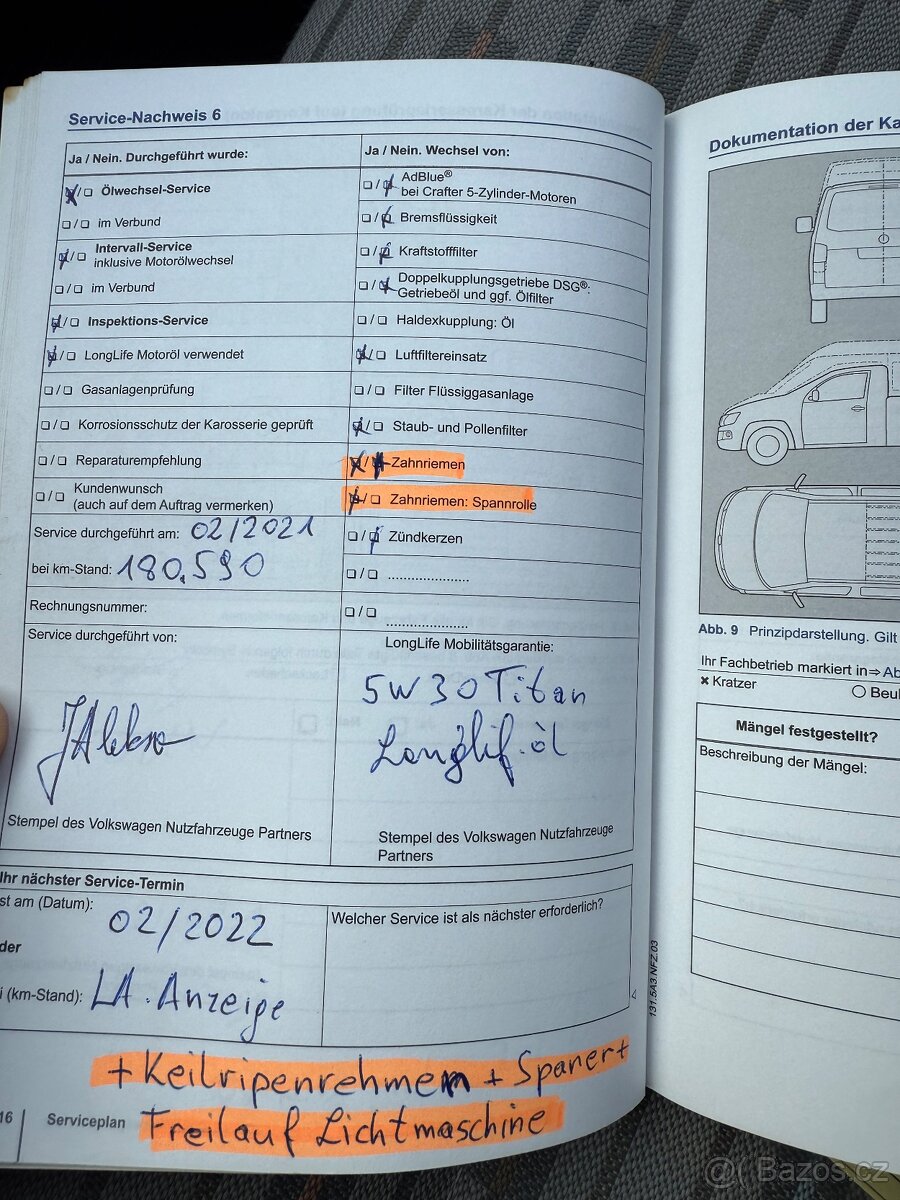 Service-Nachweis 6
Ja / Nein. Durchgeführt wurde:
Ölwechsel-Service
im Verbund
Intervall-Service
inklusive Motorölwechsel
im Verbund
Inspektions-Service
LongLife Motoröl verwendet
Gasanlagenprüfung
Korrosionsschutz der Karosserie geprüft
Reparaturempfehlung
Kundenwunsch
(auch auf dem Auftrag vermerken)
Service durchgeführt am: 02/2021
bei km-Stand: 180.590
Rechnungsnummer:
Service durchgeführt von:
Stempel des Volkswagen Nutzfahrzeuge Partners
Ja / Nein. Wechsel von:
AdBlue®
bei Crafter 5-Zylinder-Motoren
Bremsflüssigkeit
Kraftstofffilter
Doppelkupplungsgetriebe DSG®:
Getriebeöl und ggf. Ölfilter
Haldexkupplung: Öl
Luftfiltereinsatz
Filter Flüssiggasanlage
Staub- und Pollenfilter
Zahnriemen
Zahnriemen: Spannrolle
Zündkerzen
LongLife Mobilitätsgarantie:
5W30 Titan
Longlif. öl
Stempel des Volkswagen Nutzfahrzeuge
Partners
Ihr nächster Service-Termin
st am (Datum): 02/2022
der
i (km-Stand): LA. Anzeige
Welcher Service ist als nächster erforderlich?
+ Keilripenrehmen + Spaner +
Freilauf Lichtmaschine
16 Serviceplan
131.5A3.NFZ.03
Dokumentation der Ka
Abb. 9 Prinzipdarstellung. Gilt
Ihr Fachbetrieb markiert in⇒ Ab
× Kratzer
○ Beul
Mängel festgestellt?
Beschreibung der Mängel:
@( Bazoš.cz